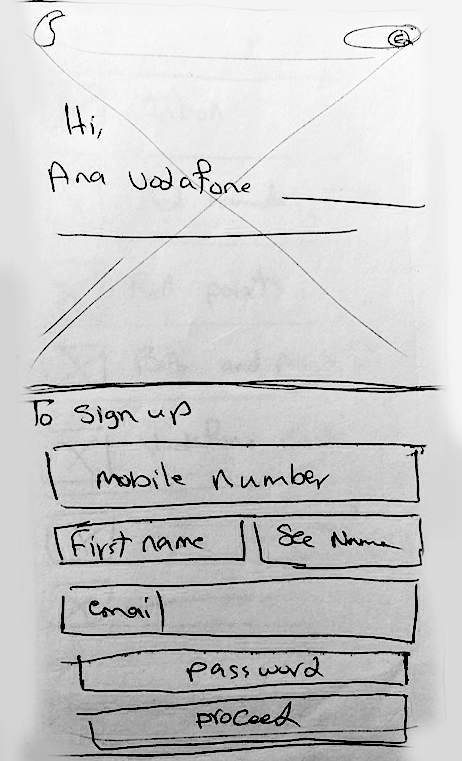 Hi,
Ana Vodafone
To Sign up
Mobile Number
First name
Sec Name
email
password
proceed